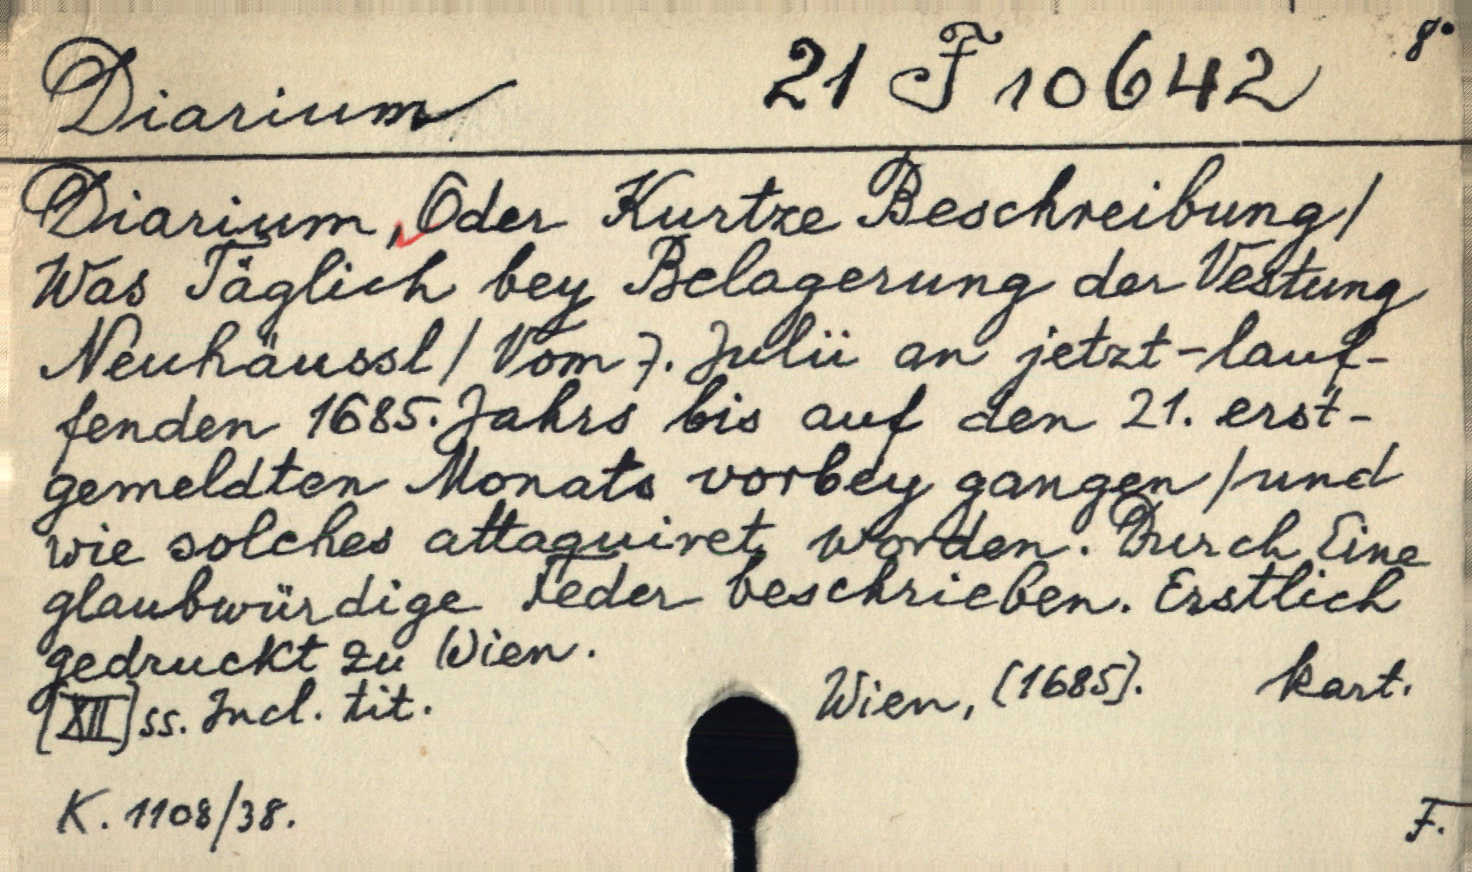 Diarium 21 F 10642 8°
Diarium, Oder Kurtze Beschreibung/
Was Täglich bey Belagerung der Vestung
Neuhäussl/ Vom 7. Julii an jetzt-lauf-
fenden 1685. Jahrs bis auf den 21. erst-
gemeldten Monats vorbey gangen/und
wie solches attaquiret worden. Durch Eine
glaubwürdige Feder beschrieben. Erstlich
gedruckt zu Wien.
[XII] ss. Incl. tit. Wien, [1685]. kart.
K. 1108/38. F.